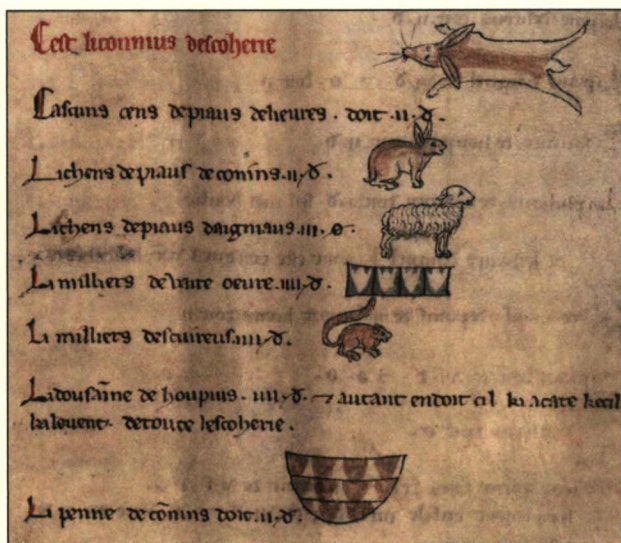 Cest li conniuis descoherie
Cascuns cens de piaus de lieures . doit .ii. d.
Li chens de piaus de conins .ii. d.
Li chens de piaus daigniaus .iii. o.
Li milliers de vaire oeure .iiii. d.
Li milliers descuireus .iiii. d.
Li dousaine de houpius . iiii. d. autant en doit cil ki acate ke cil
ki le vent . de toute lescoherie .
Li penne de conins doit .ii. d.